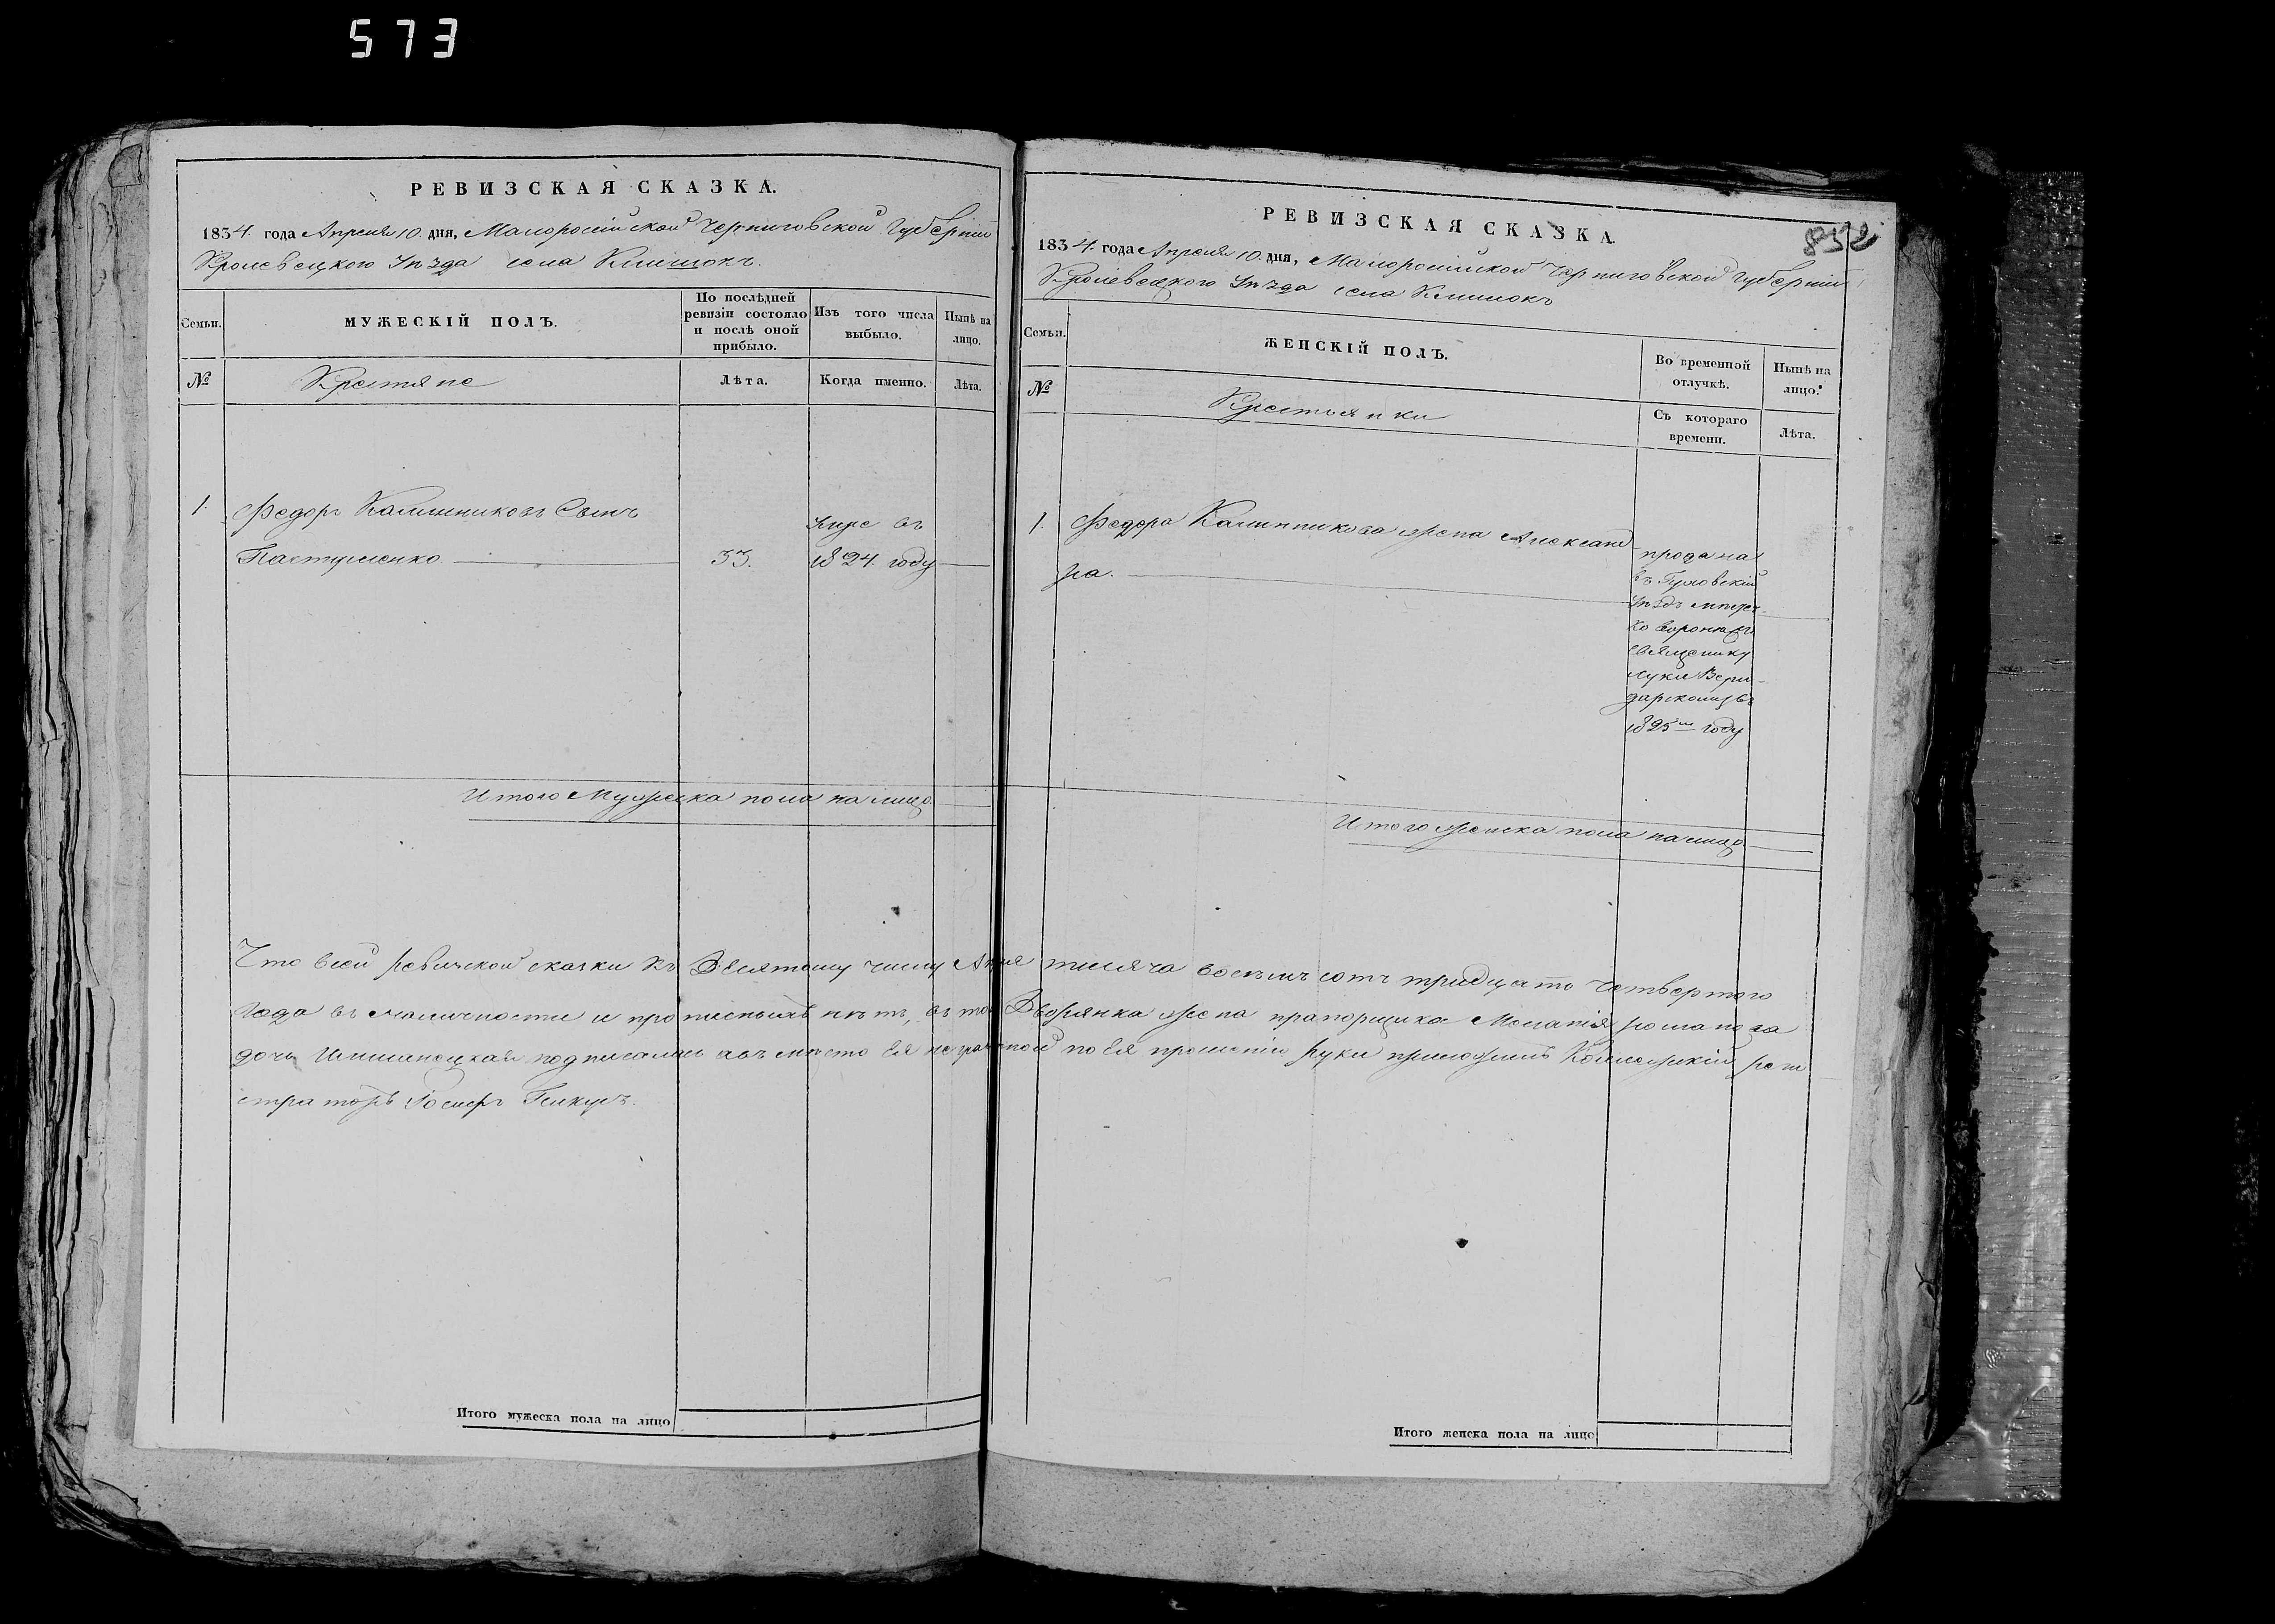 573
РЕВИЗСКАЯ СКАЗКА.
1834. года Апреля 10. дня, Малоросійской Черниговской Губерніи
Кролевецкого Уѣзда села Клишокъ.
Семьи.
МУЖЕСКІЙ ПОЛЪ.
По послѣдней
ревизіи состояло
и послѣ оной
прибыло.
Изъ того числа
выбыло.
Нынѣ на
лицо.
№
Крестяне
Лѣта.
Когда именно.
Лѣта.
1. Федоръ Калинниковъ Сынъ
Пастушенко
33.
умре въ
1824. году
Итого Мужеска пола на лицо
РЕВИЗСКАЯ СКАЗКА.
852
1834. года Апреля 10. дня, Малоросійской Черниговской Губерніи
Кролевецкого Уѣзда села Клишокъ
Семьи.
ЖЕНСКІЙ ПОЛЪ.
Во временной
отлучкѣ.
Нынѣ на
лицо.
№
Крестьянки
Съ котораго
времени.
Лѣта.
1. Федора Калинникова жена Александ
ра.
продана
въ Глуховскій
Уѣздъ мѣстеч-
ко Воронежъ
священику
Луки
1825 году
Итого женска пола на лицо
Что всей ревизской сказки къ Десятому числу Апреля тисяча восемъ сотъ тридцато четвертого
года въ наличности и прописныхъ нѣтъ, въ том Дворянка жена прапорщика Мелания романова
дочь подписалась а вместо Ея неграмотной по Ея прошению руки приложилъ Колежский реги
страторъ
Итого мужеска пола на лицо
Итого женска пола на лицо